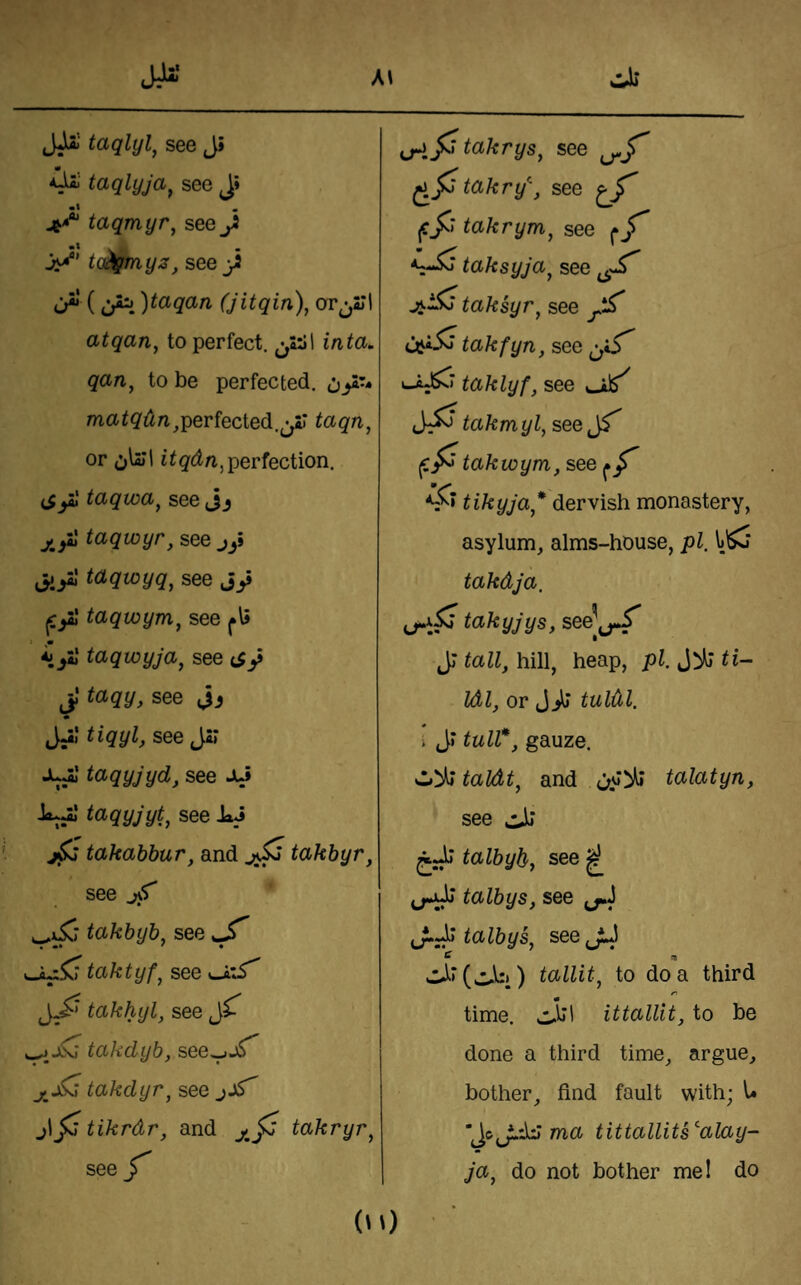 تقليل ٨١ تلت
تقليل taqlyl, see قل
تقلية taqlyja, see قلى
تقمير taqmyr, see قمر
تقميز taqmyz, see قمز
تقن ( يتقن )taqan (jitqin), or اتقن
atqan, to perfect. انتقن inta-
qan, to be perfected. متقون
matqûn, perfected. تقن taqn,
or اتقان itqân, perfection.
تقوى taqwa, see وقى
تقوير taqwyr, see قور
تقويق taqwyq, see قوق
تقويم taqwym, see قام
تقوية taqwyja, see قوى
تقى taqy, see وقى
تقيل tiqyl, see تقل
تقييد taqyjyd, see قيد
تقييط taqyjyṭ, see قيط
تكبر takabbur, and تكبير takbyr,
see كبر
تكبيب takbyb, see كب
تكتيف taktyf, see كتف
تكحيل takḥyl, see كحل
تكديب takdyb, see كدب
تكدير takdyr, see كدر
تكرار tikrâr, and تكرير takryr,
see كر
تكريس takrys, see كرس
تكريع takry‘, see كرع
تكريم takrym, see كرم
تكسية taksyja, see كسى
تكشير takśyr, see كشر
تكفين takfyn, see كفن
تكليف taklyf, see كلف
تكميل takmyl, see كمل
تكويم takwym, see كوم
تكية tikyja,* dervish monastery,
asylum, alms-house, pl. تكايا
takâja.
تكييس takyjys, see كيس
تل tall, hill, heap, pl. تلال ti-
lâl, or تلول tulûl.
تل tull*, gauze.
تلات talât, and تلاتين talatyn,
see تلت
تلبيخ talbyḫ, see لبخ
تلبيس talbys, see لبس
تلبيش talbyś, see لبش
تلت (يتلت) tallit, to do a third
time. اتلت ittallit, to be
done a third time, argue,
bother, find fault with; ما
تتلتش على ma tittallitś ‘alay-
ja, do not bother me! do
(١١)